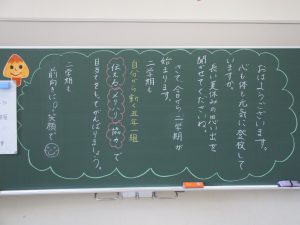 おはようございます。
心も体も元気に登校して
いますか。
長い夏休みの思い出を
聞かせてくださいね。
さて、今日から二学期が
始まります。
二学期も
自分から動く五年一組
伝える メリハリ 協力 で
目標をもってがんばりましょう。
二学期も
前向きに 笑顔で